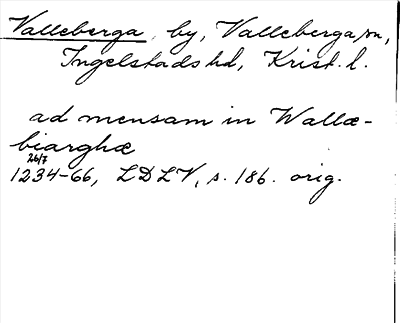 Valleberga, by, Valleberga sn,
Ingelstads hd, Krist. l.
ad mensam in Wallæ-
biarghæ
26/7
1234-66, LDLV, s. 186. orig.